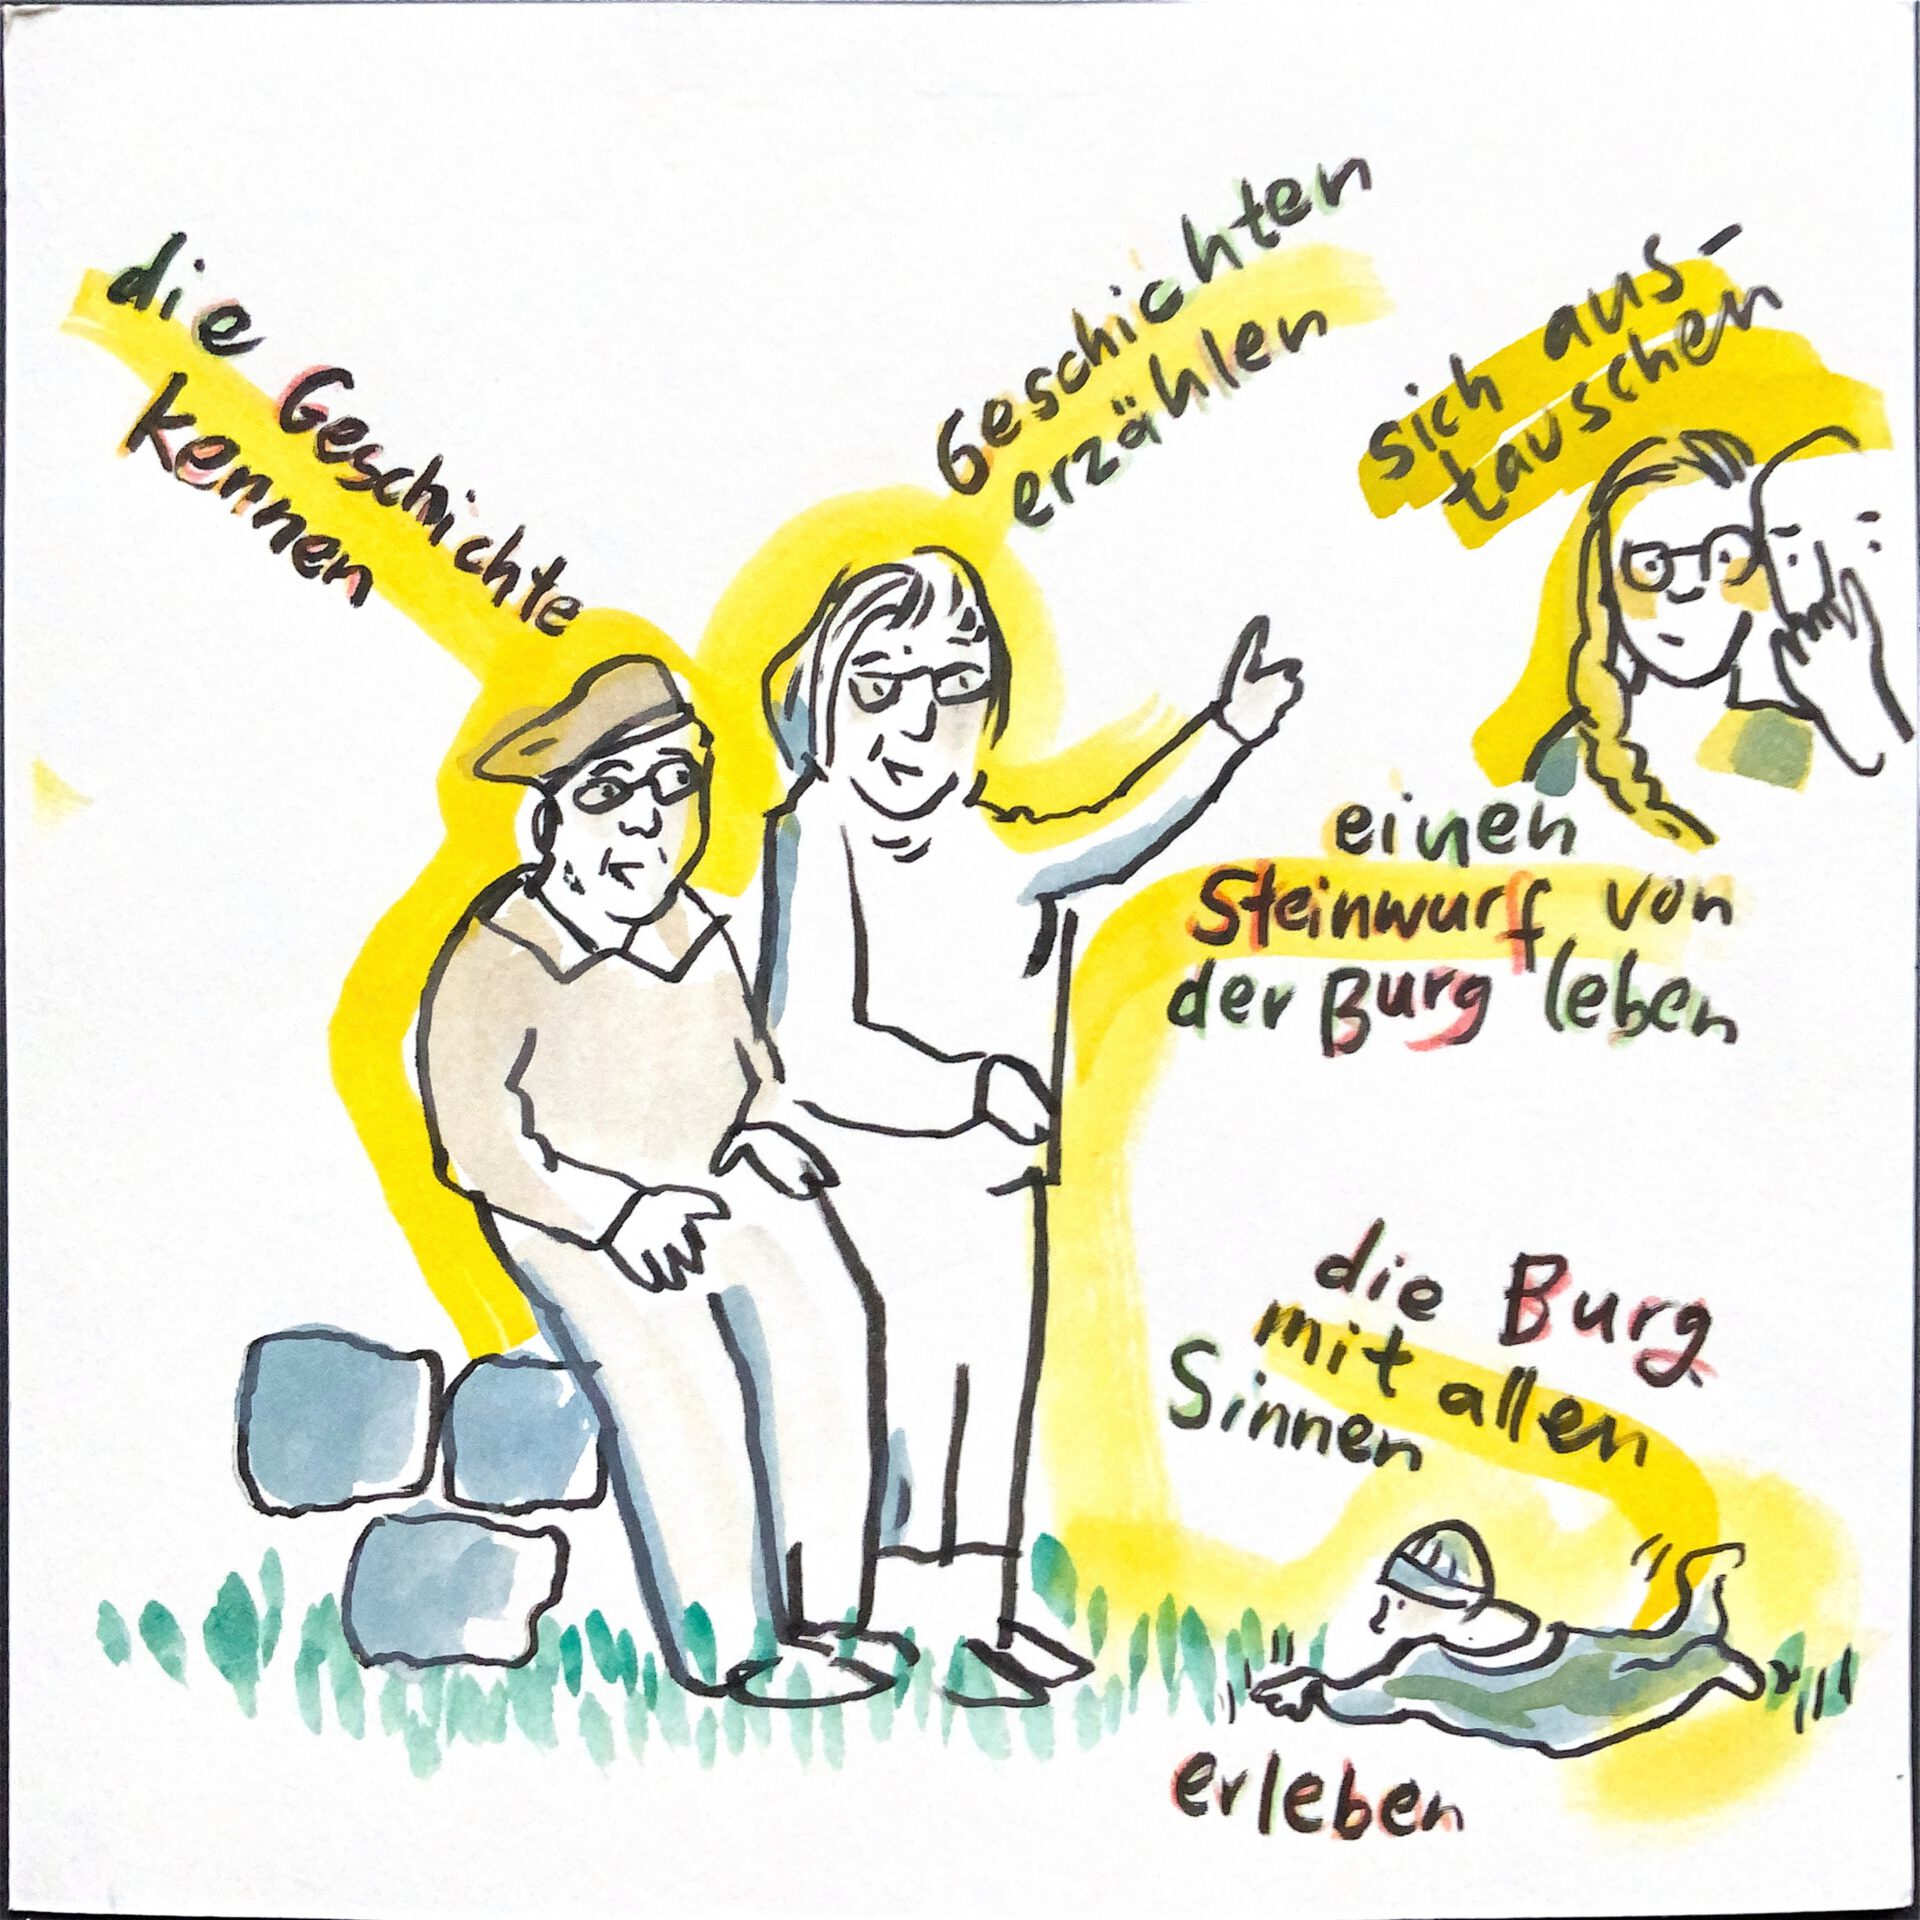 die Geschichte
kennen
Geschichten
erzählen
sich aus-
tauschen
einen
Steinwurf von
der Burg leben
die Burg
mit allen
Sinnen
erleben